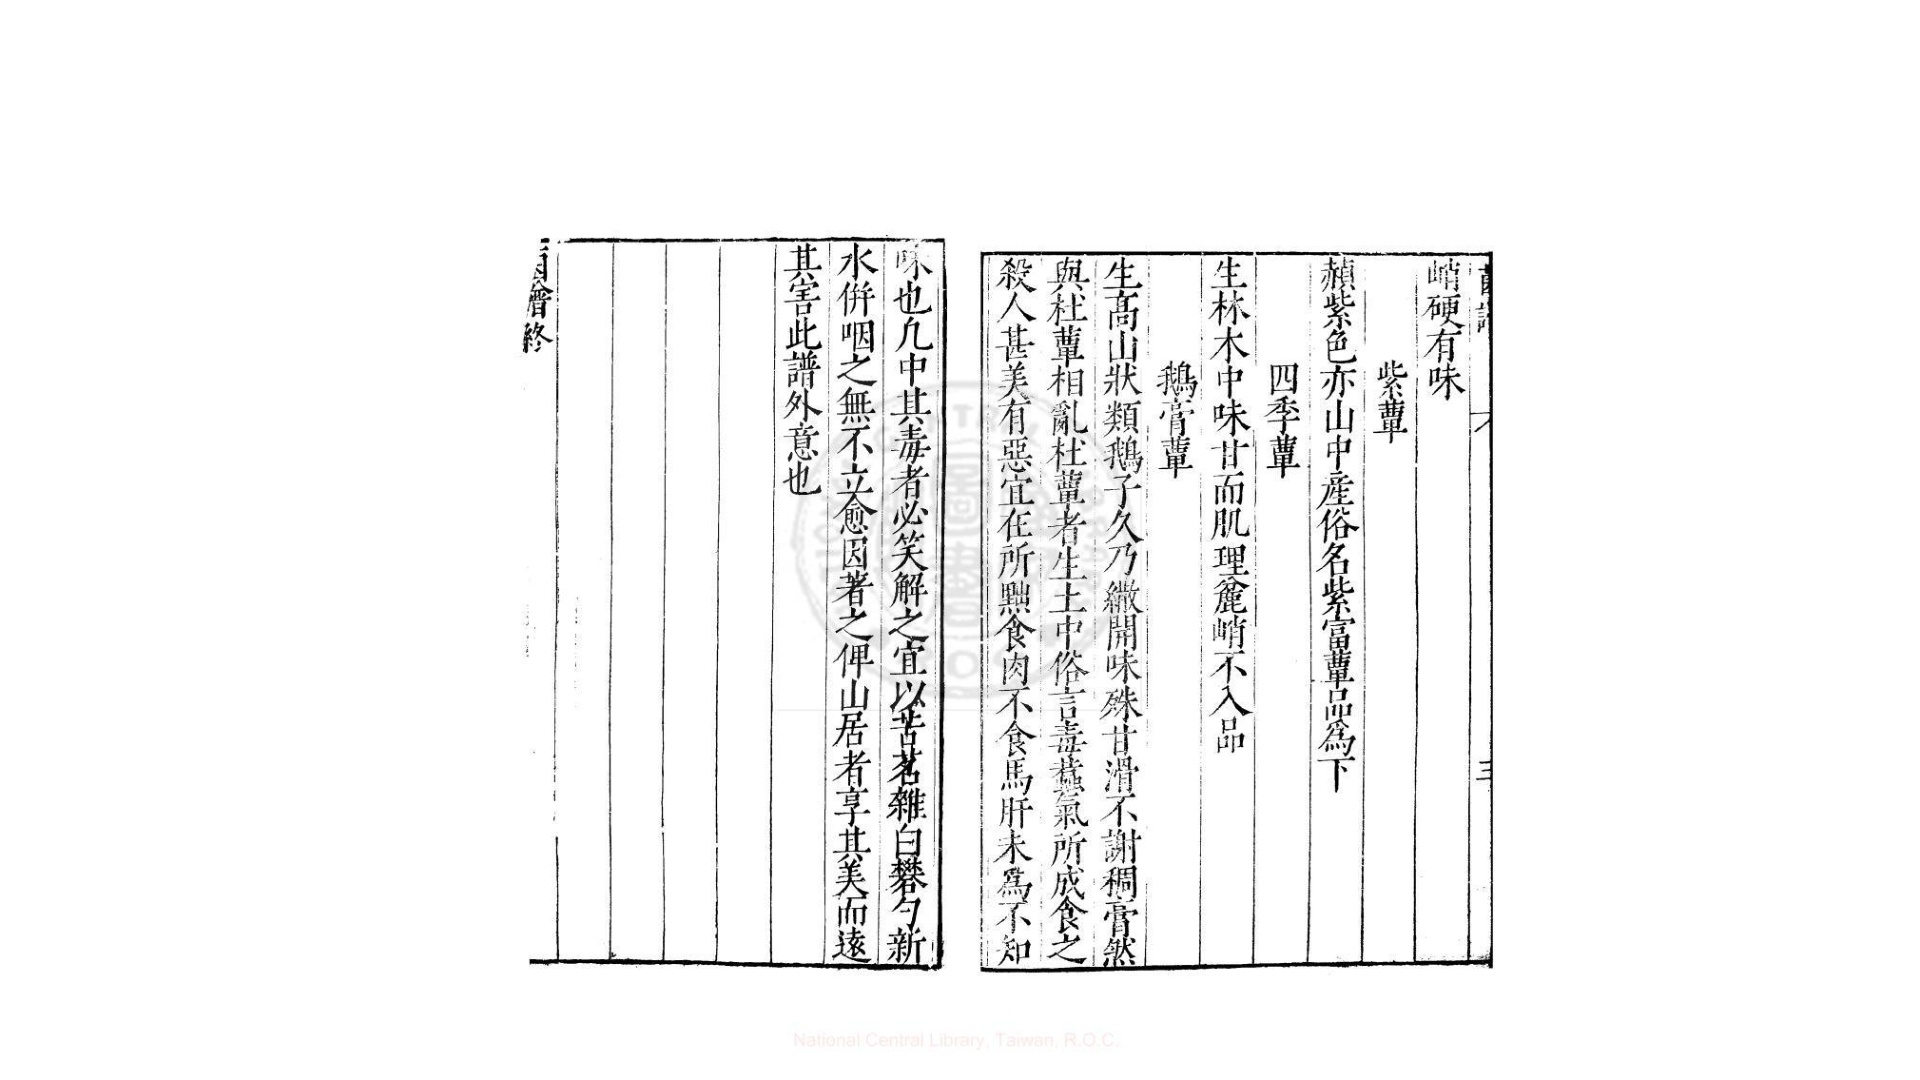 峭硬有味
紫蕈
赬紫色亦山中産俗名紫富蕈品為下
四季蕈
生林木中味甘而肌理麄峭不入品
鵝膏蕈
生高山狀類鵝子久乃繖開味殊甘滑不謝稠膏然
與杜蕈相亂杜蕈者生土中俗言毒蠚氣所成食之
殺人甚美有惡宜在所黜食肉不食馬肝未為不知
味也凢中其毒者必笑解之宜以苦茗雜白礬勺新
水併咽之無不立愈因著之俾山居者享其美而遠
其害此譜外意也
終
National Central Library, Taiwan, R.O.C.